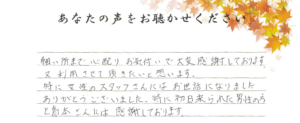 あなたの声をお聴かせください
細い所まで心配り お気付いて 大変感謝しております
又 利用させて頂きたいと思います。
特に女性のスタッフさんには お世話になりました
ありがとうございました。特に初日来られた男性の方
さんには 感謝しております。